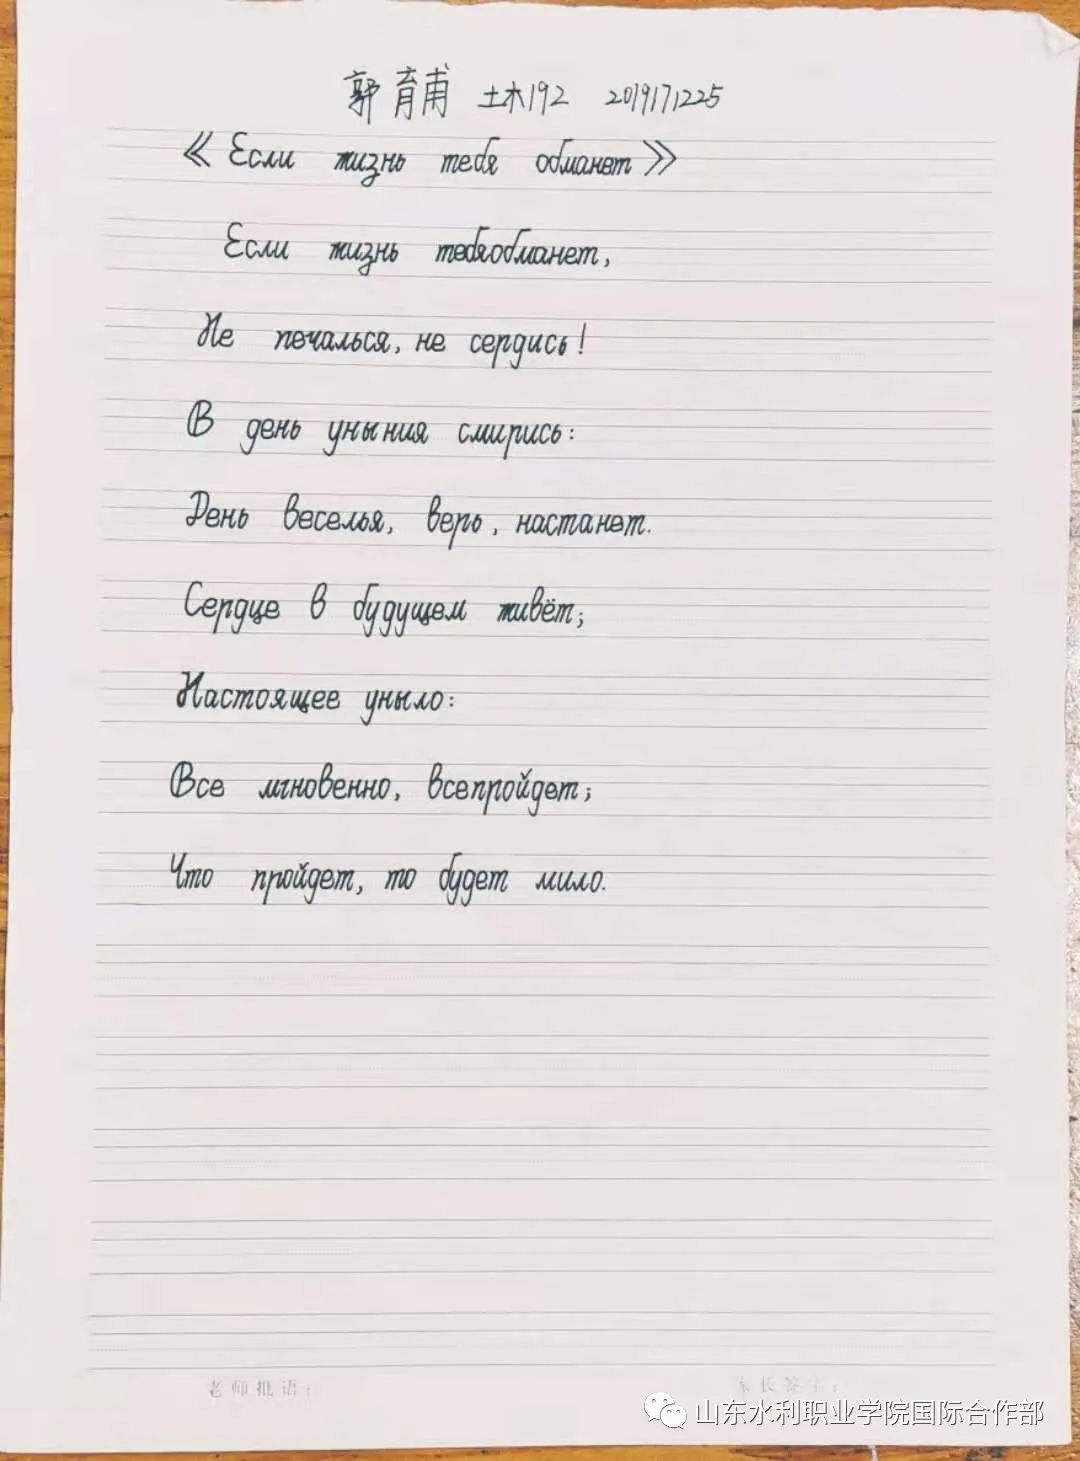 郭育甫 土木192 2019171225
《Если жизнь тебя обманет》
Если жизнь тебяобманет,
Не печалься, не сердись!
В день уныния смирись:
День веселья, верь, настанет.
Сердце в будущем живёт;
Настоящее уныло:
Все мгновенно, всепройдет;
Что пройдет, то будет мило.
老师批语： 家长签字：
山东水利职业学院国际合作部